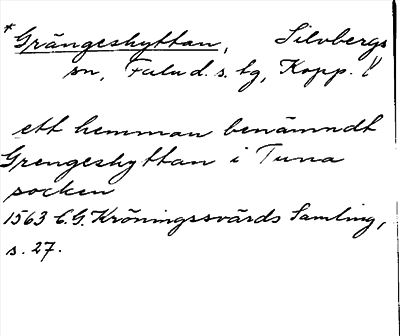 *Grängeshyttan, Silvbergs
sn, Falu d. s. tg, Kopp. l
ett hemman benämndt
Grengeshyttan i Tuna
socken
1563 C.G. Kröningssvärds Samling,
s. 27.